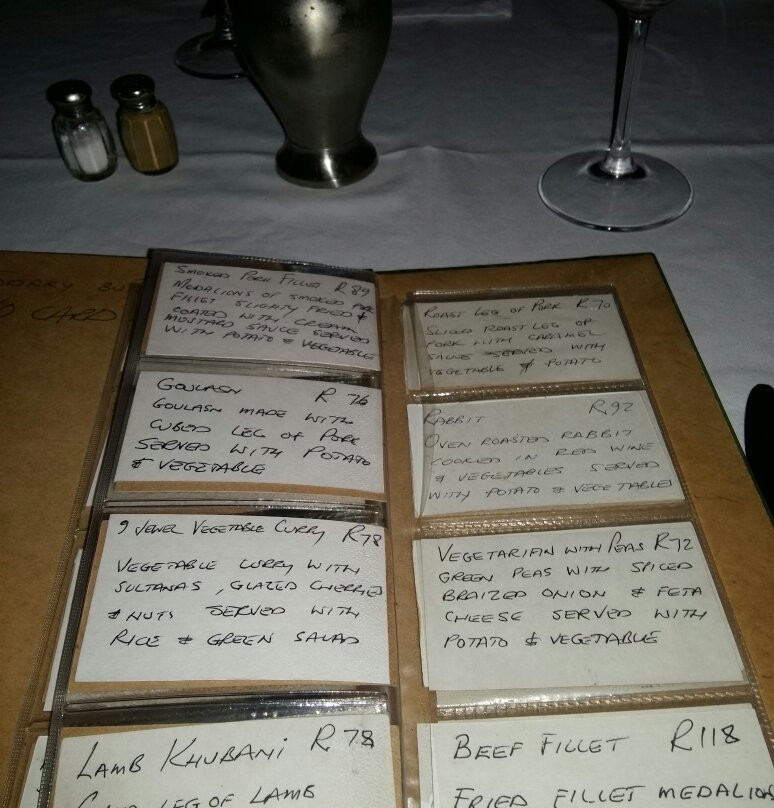 SORRY BU
CARD
SMOKED PORK FILLET R89
MEDALIONS OF SMOKED PORK
FILLET SLIGHTY FRIED &
COATED WITH CREAM
MUSTARD SAUCE SERVED
WITH POTATO & VEGETABLE
GOULASH R 76
GOULASH MADE WITH
CUBED LEG OF PORK
SERVED WITH POTATO
& VEGETABLE
9 JEWEL VEGETABLE CURRY R78
VEGETABLE CURRY WITH
SULTANAS, GLAZED CHERRIES
& NUTS SERVED WITH
RICE & GREEN SALAD
LAMB KHUBANI R 78
LEG OF LAMB
ROAST LEG OF PORK R 70
SLICED ROAST LEG OF
PORK WITH CARAMEL
SAUCE SERVED WITH
VEGETABLE & POTATO
RABBIT R92
OVEN ROASTED RABBIT
COOKED IN RED WINE
& VEGETABLES SERVED
WITH POTATO & VEGETABLES
VEGETARIAN WITH PEAS R72
GREEN PEAS WITH SPICED
BRAIZED ONION & FETA
CHEESE SERVED WITH
POTATO & VEGETABLE
BEEF FILLET R118
FRIED FILLET MEDALION